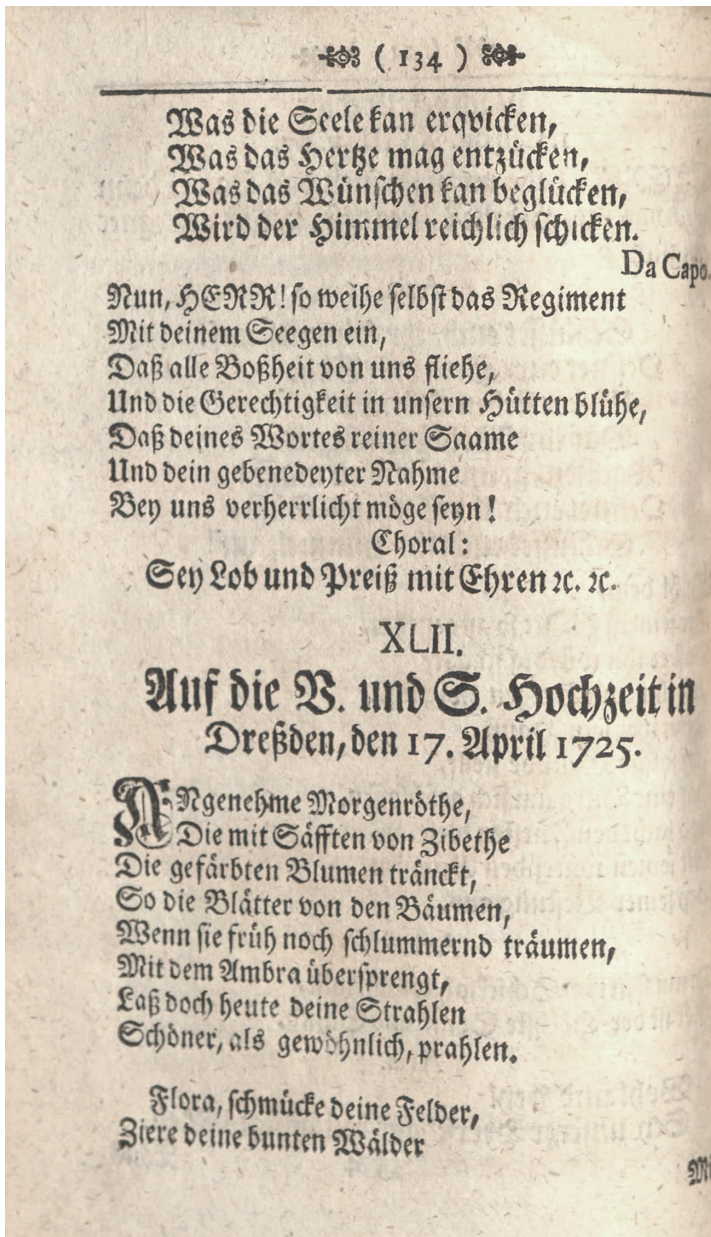 ( 134 )
Was die Seele kan erqvicken,
Was das Hertze mag entzücken,
Was das Wünschen kan beglücken,
Wird der Himmel reichlich schicken.
Da Capo.
Nun, HERR! so weihe selbst das Regiment
Mit deinem Seegen ein,
Daß alle Boßheit von uns fliehe,
Und die Gerechtigkeit in unsern Hütten blühe,
Daß deines Wortes reiner Saame
Und dein gebenedeyter Nahme
Bey uns verherrlicht möge seyn!
Choral:
Sey Lob und Preiß mit Ehren ꝛc. ꝛc.
XLII.
Auf die V. und S. Hochzeit in
Dreßden, den 17. April 1725.
ANgenehme Morgenröthe,
Die mit Säfften von Zibethe
Die gefärbten Blumen tränckt,
So die Blätter von den Bäumen,
Wenn sie früh noch schlummernd träumen,
Mit dem Ambra übersprengt,
Laß doch heute deine Strahlen
Schöner, als gewöhnlich, prahlen.
Flora, schmücke deine Felder,
Ziere deine bunten Wälder